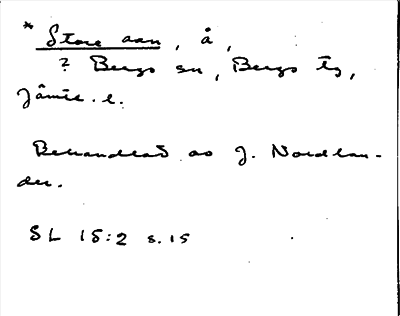 * Store aan, å,
? Bergs sn, Bergs tg,
Jämtl. l.
Behandlad av J. Nordlan-
der.
SL 15:2 s. 15